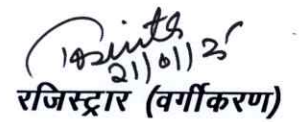 21/01/25
रजिस्ट्रार (वर्गीकरण)